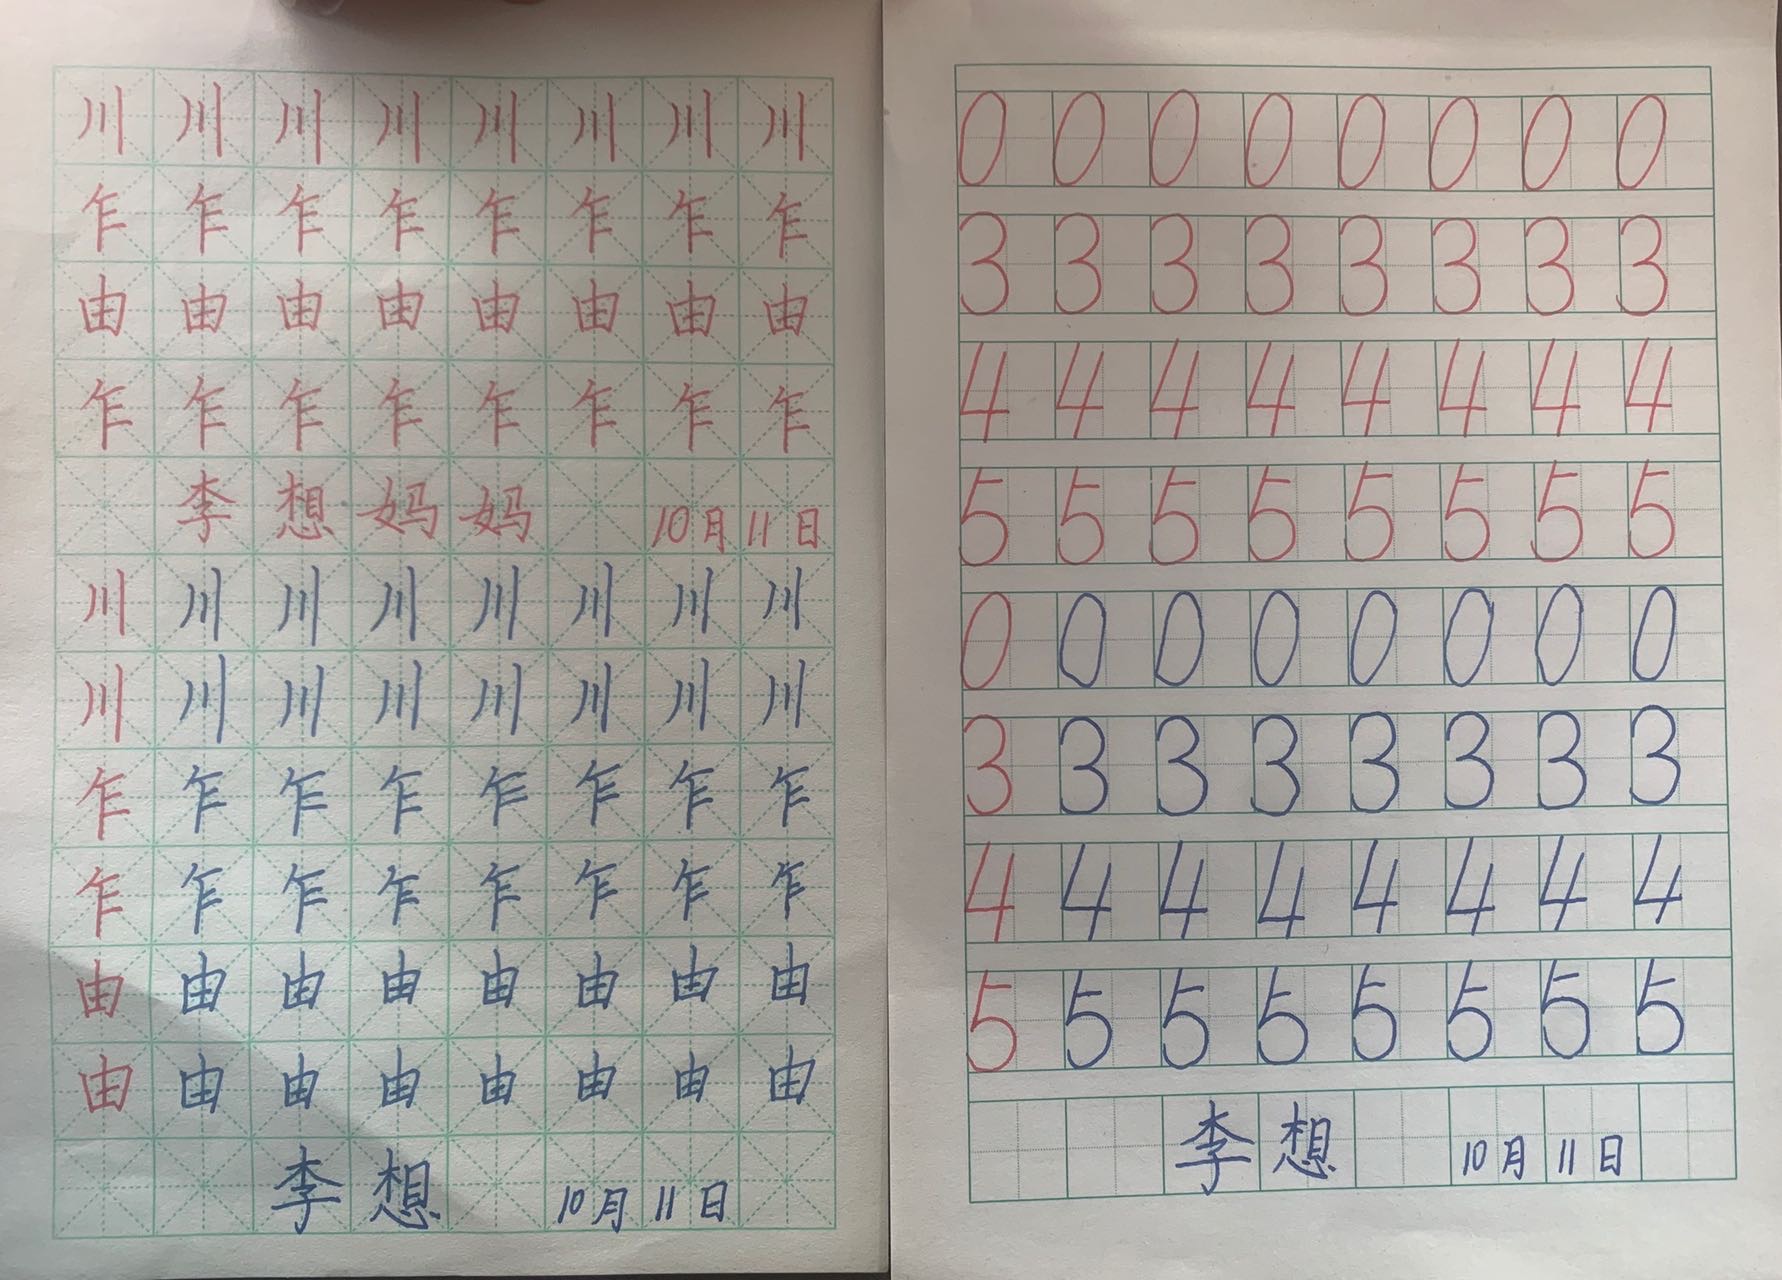 川川川川川川川川
乍乍乍乍乍乍乍乍
由由由由由由由由
乍乍乍乍乍乍乍乍
李想妈妈 10月11日
川川川川川川川川
川川川川川川川川
乍乍乍乍乍乍乍乍
乍乍乍乍乍乍乍乍
由由由由由由由由
由由由由由由由由
李想 10月11日
0 0 0 0 0 0 0 0
3 3 3 3 3 3 3 3
4 4 4 4 4 4 4 4
5 5 5 5 5 5 5 5
0 0 0 0 0 0 0 0
3 3 3 3 3 3 3 3
4 4 4 4 4 4 4 4
5 5 5 5 5 5 5 5
李想 10月11日